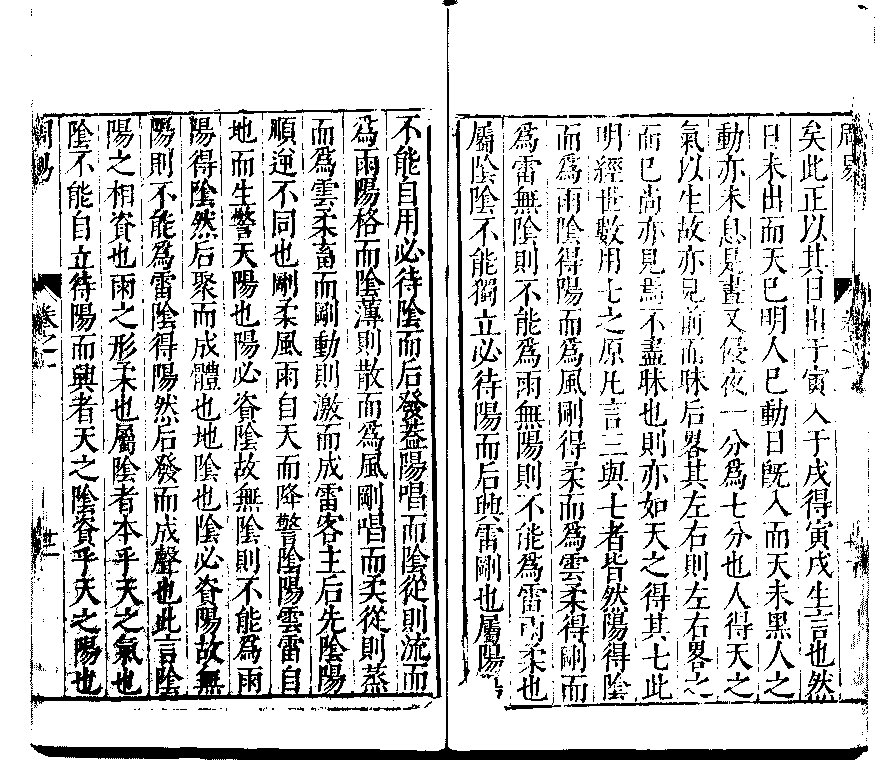 周易
矣此正以其日出于寅入于戌得寅戌生言也然
日未出而天已明人已動日旣入而天未黑人之
動亦未息是晝又侵夜一分為七分也人得天之
氣以生故亦見前而昧后畧其左右則左右畧之
而已尚亦見焉不盡昧也則亦如天之得其七此
明經世數用七之原凡言三與七者皆然陽得陰
而為雨陰得陽而為風剛得柔而為雲柔得剛而
為雷無陰則不能為雨無陽則不能為雷雨柔也
屬陰陰不能獨立必待陽而后興雷剛也屬陽
不能自用必待陰而后發葢陽唱而陰從則流而
為雨陽格而陰薄則散而為風剛唱而柔從則蒸
而為雲柔畜而剛動則激而成雷客主后先陰陽
順逆不同也剛柔風雨自天而降警陰陽雲雷自
地而生警天陽也陽必資陰故無陰則不能為雨
陽得陰然后聚而成體也地陰也陰必資陽故無
陽則不能為雷陰得陽然后發而成聲也此言陰
陽之相資也雨之形柔也屬陰者本乎天之氣也
陰不能自立待陽而興者天之陰資乎天之陽也
周易
卷之一
廿一